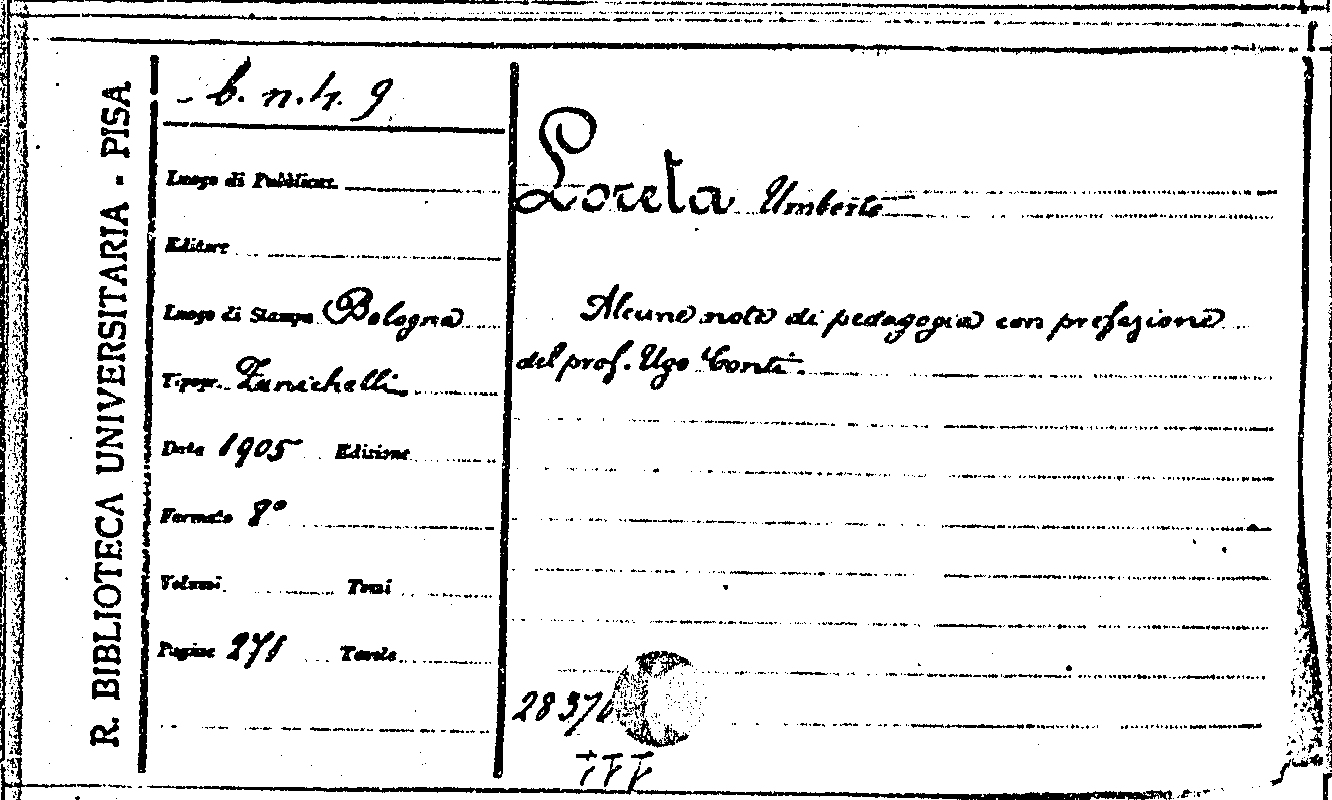 R. BIBLIOTECA UNIVERSITARIA - PISA
b. n. h. 9
Luogo di Pubblicaz.
Editore
Luogo di Stampa Bologna
Tipogr. Zanichelli
Data 1905 Edizione
Formato 8°
Volumi Tomi
Pagine 271 Tavole
Loreta Umberto
Alcune note di pedagogia con prefazione
del prof. Ugo Conti.
2837